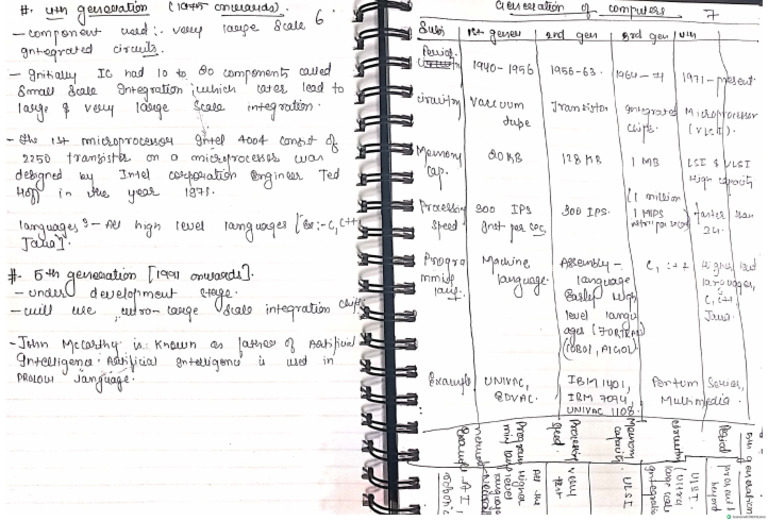 #. 4th generation (1975 onwards).
6
- component used:- very large scale
Integrated circuits.
- Initially IC had 10 to 20 components called
small scale Integration, which later lead to
large & very large scale integration.
- The 1st microprocessor Intel 4004 consist of
2250 transistor on a microprocessor was
designed by Intel corporation Engineer Ted
Hoff in the year 1971.
languages :- All high level languages [Ex:- C, C++
Java].
#. 5th generation [1991 onwards].
- under development stage.
- will use, ultra-large scale integration chips.
- John McCarthy is known as father of Artificial
Intelligence. Artificial Intelligence is used in
PROLOG language.
Generation of computers 7
Subj 1st gener 2nd gen 3rd gen 4th
Period 1940-1956 1956-63. 1964-71 1971-present
circuitry Vaccum Transistor Integrated Microprocessor
tube chips. (VLSI).
Memory 20 KB 128 KB 1 MB LSI & VLSI
cap. High capacity
Processing 300 IPS 300 IPS. (1 million faster than
speed Inst per sec 1 MIPS
Progra Machine Assembly- C, C++ Higher level
mming language. language languages,
lang. Earlier High C, C++
level langu Java.
ages (FORTRAN
COBOL, ALGOL)
Example UNIVAC, IBM 1401, Pentium Series,
EDVAC. IBM 7094, Multimedia.
UNIVAC 1108
5th generation
Period
present
beyond
circuitry
ULSI
(Ultra
large scale
Integration
Memory
capacity
ULSI
Processing
speed
very
fast
Program
ming lang
All the
Higher
level
language
Example AI,
Robotic